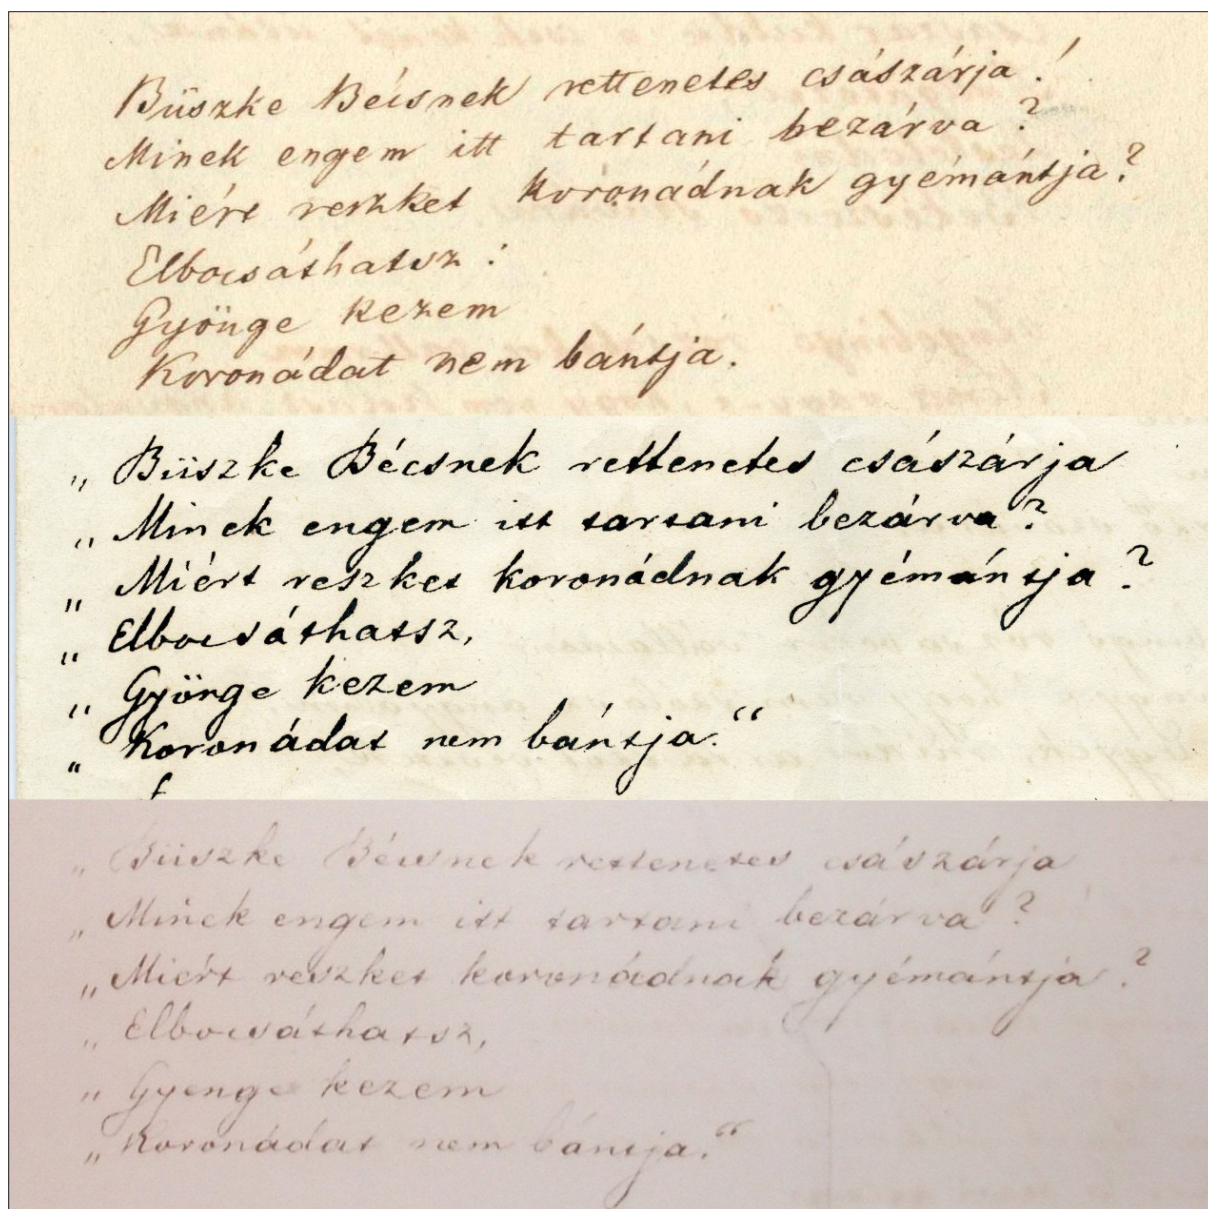 Büszke Bécsnek rettenetes császárja!
Minek engem itt tartani bezárva?
Miért reszket koronádnak gyémántja?
Elbocsáthatsz:
Gyönge kezem
Koronádat nem bántja.
„Büszke Bécsnek rettenetes császárja
„Minek engem itt tartani bezárva?
„Miért reszket koronádnak gyémántja?
„Elbocsáthatsz,
„Gyönge kezem
„Koronádat nem bántja.“
„Büszke Bécsnek rettenetes császárja
„Minek engem itt tartani bezárva?
„Miért reszket koronádnak gyémántja?
„Elbocsáthatsz,
„Gyenge kezem
„Koronádat nem bántja.“